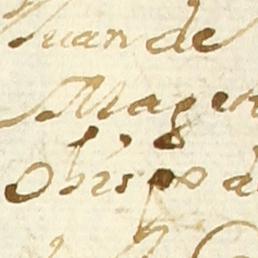 Juan de
Magan
Obispo d